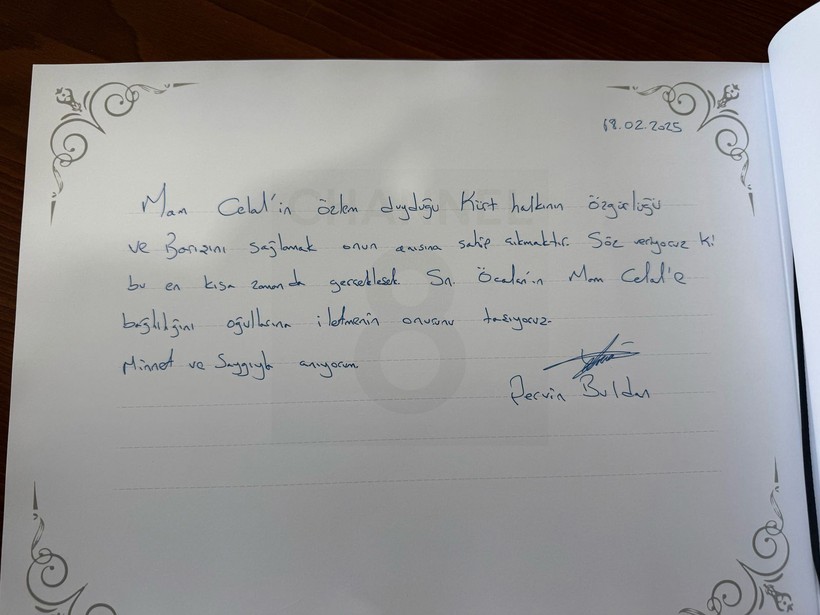 18.02.2025
Mam Celal'in özlem duyduğu Kürt halkının özgürlüğü
ve Barışını sağlamak onun anısına sahip çıkmaktır. Söz veriyoruz ki
bu en kısa zamanda gerçekleşecek. Sn. Öcalan'ın Mam Celal'e
bağlılığını oğullarına iletmenin onurunu taşıyoruz.
Minnet ve Saygıyla anıyorum
Pervin Buldan